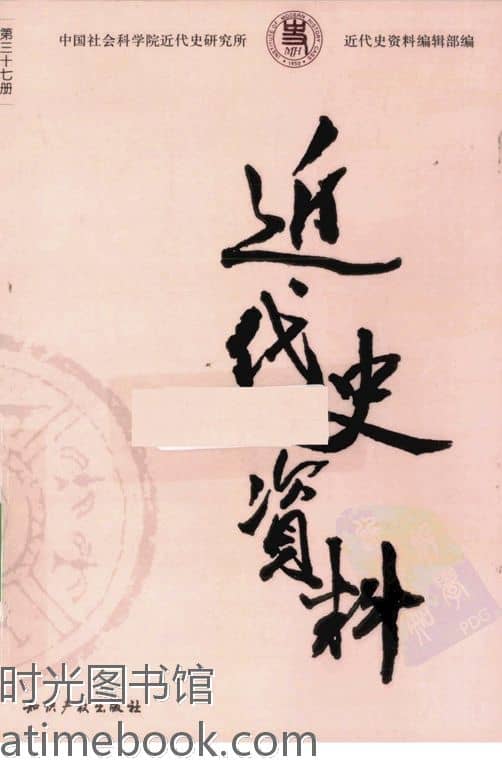 第三十七册
中国社会科学院近代史研究所
近代史资料编辑部编
INSTITUTE OF MODERN HISTORY, CASS
MH
1950
近代史资料
PDG
时光图书馆
知识产权出版社
atimebook.com